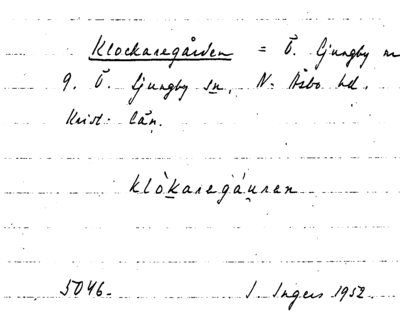 Klockaregården = Ö. Ljungby nr
9. Ö. Ljungby sn, N. Åsbo hd.
Krist. län.
klò̀karegáu̯ren
5046. I. Ingers 1952.